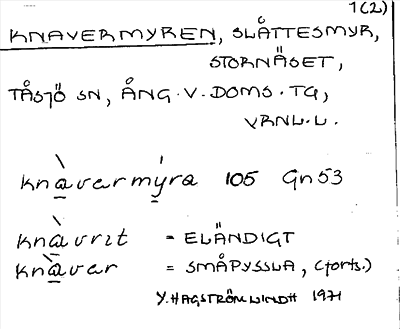 1(2)
KNAVERMYREN, SLÅTTESMYR,
STORNÄSET,
TÅSJÖ SN, ÅNG. V. DOMS. TG,
VRNL. L.
knàvarmýra 105 Gn53
knàvrɩt = ELÄNDIGT
knàvar = SMÅPYSSLA, (forts.)
Y. HAGSTRÖM LINDH 1971